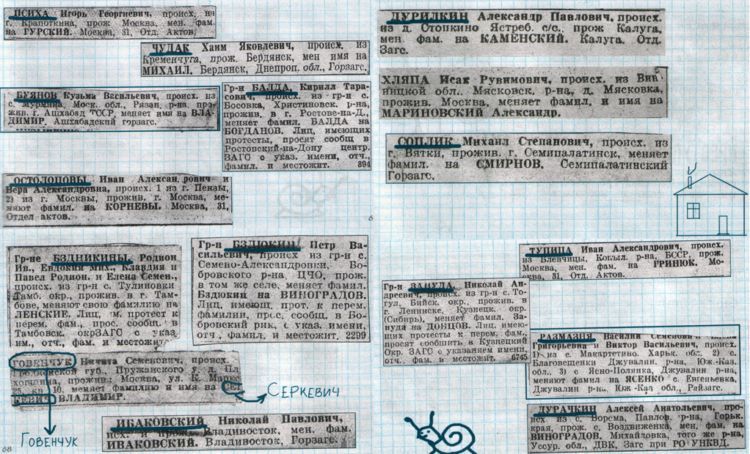 ПСИХА Игорь Георгиевич, происх. из
г. Кропоткина, прож. Москва, мен. фам.
на ГУРСКИЙ. Москва, 31, Отд. Актов.
ЧУДАК Хаим Яковлевич, происх. из
Кременчуга, прож. Бердянск, мен имя на
МИХАИЛ. Бердянск, Днепроп. обл., Горзагс.
БУЯНОВ Кузьма Васильевич, происх. из
Моск. обл., Рязан. р-на, про-
жив. г. Ашхабад ТССР, меняет имя на ВЛА-
ДИМИР. Ашхабадский горзагс.
Гр-н БАЛДА, Кирилл Тара-
сович, происх. из гр-н с.
Босовка, Христиновск. р-на,
прожив. в г. Ростове-на-Д.,
меняет фамил. БАЛДА на
БОГДАНОВ. Лиц, имеющих
протесты, просят сообщ в
Ростовский-на-Дону центр.
ЗАГС о указ. имени, отч.,
фамил. и местожит. 894
ОСТОЛОПОВЫ Иван Александрович
Вера Александровна, происх. 1 из г. Пензы,
2) из г. Москвы, прожив. г. Москва, ме-
няют фамил. на КОРНЕВЫ. Москва, 31,
Отдел актов.
Гр-не БЗДНИКИНЫ, Родион
Ив., Евдокия Мих., Клавдия и
Павел Родион. и Елена Семен.,
происх. из гр-н с. Тулиновки
Тамб. окр., прожив. в г. Там-
бове, меняют свою фамилию на
ЛЕНСКИЕ. Лиц, им. протест к
перем. фам., прос. сообщ. в
Тамбовск. окрЗАГС о указ.
им., отч., фам. и местожит.
Гр-н БЗДЮКИН Петр Ва-
сильевич, происх из гр-н с.
Семено-Александровки, Бо-
бровского р-на ЦЧО, прож.
в том же селе, меняет фамил.
Бздюкин на ВИНОГРАДОВ.
Лиц, имеющ. прот. к перем.
фамилии, прос. сообщ. в Бо-
бровский рик, о указ. имени,
отч., фамил. и местожит. 2299
ГОВЕНЧУК Никита Семенович, происх.
губ., Пружанского у. д.
прожив. Москва, ул. К. Маркса,
меняет фамилию и имя на СЕР-
КЕВИЧ ВЛАДИМИР.
СЕРКЕВИЧ
ГОВЕНЧУК
ИБАКОВСКИЙ Николай Павлович,
происх. и прожив. Владивосток, мен. фам.
ИВАКОВСКИЙ. Владивосток, Горзагс.
ДУРИЛКИН Александр Павлович, происх.
из д. Стопкино Ястреб. с/с., прож Калуга,
мен. фам. на КАМЕНСКИЙ. Калуга. Отд.
Загс.
ХЛЯПА Исак Рувимович, происх. из Вин-
ницкой обл. Мясковск. р-на, д. Мясковка,
прожив. Москва, меняет фамил. и имя на
МАРИНОВСКИЙ Александр.
СОПЛИК Михаил Степанович, происх. из
г. Вятки, прожив. г. Семипалатинск, меняет
фамил. на СМИРНОВ. Семипалатинский
Горзагс.
ТУПИЦА Иван Александрович, происх.
из Бленчицы, Копыл. р-на, БССР, прож.
Москва, мен. фам. на ГРИНЮК. Мо-
сква, 31, Отд. Актов.
Гр-н ЗАНУДА, Николай Ан-
дреевич, происх. из гр-н с. То-
гул, Бийск. окр., прожив. в
г. Ленинске, Кузнецк. окр.
(Сибирь), меняет фамил. За-
нуда на ДОНЦОВ. Лиц, име-
ющих протесты к перем. фам.,
просят сообщить в Кузнецкий
Окр. ЗАГС о указанном имени,
отч., фам. и местожит. 6745
РАЗМАЗНЯ Василий Семенович и
Григорьевна и Виктор Васильевич, происх.
1) из с. Макартетино, Харьк. обл. 2) с.
Благовещенки Джувалин. р-на, Юж.-Каз.
обл. 3) с Ясно-Полянка, Джувалин р-на,
меняют фамил на ЯСЕНКО с. Евгеньевка,
Джувалин р-на, Юж-Каз обл., Райзагс.
ДУРАЧКИН Алексей Анатольевич, про-
исх. из с. Ворсма, Павлов. р-на, Горьк.
края, прож. с. Воздвиженка, мен. фам. на
ВИНОГРАДОВ, Михайловка, того же р-на,
Уссур. обл., ДВК, Загс при РО УНКВД.